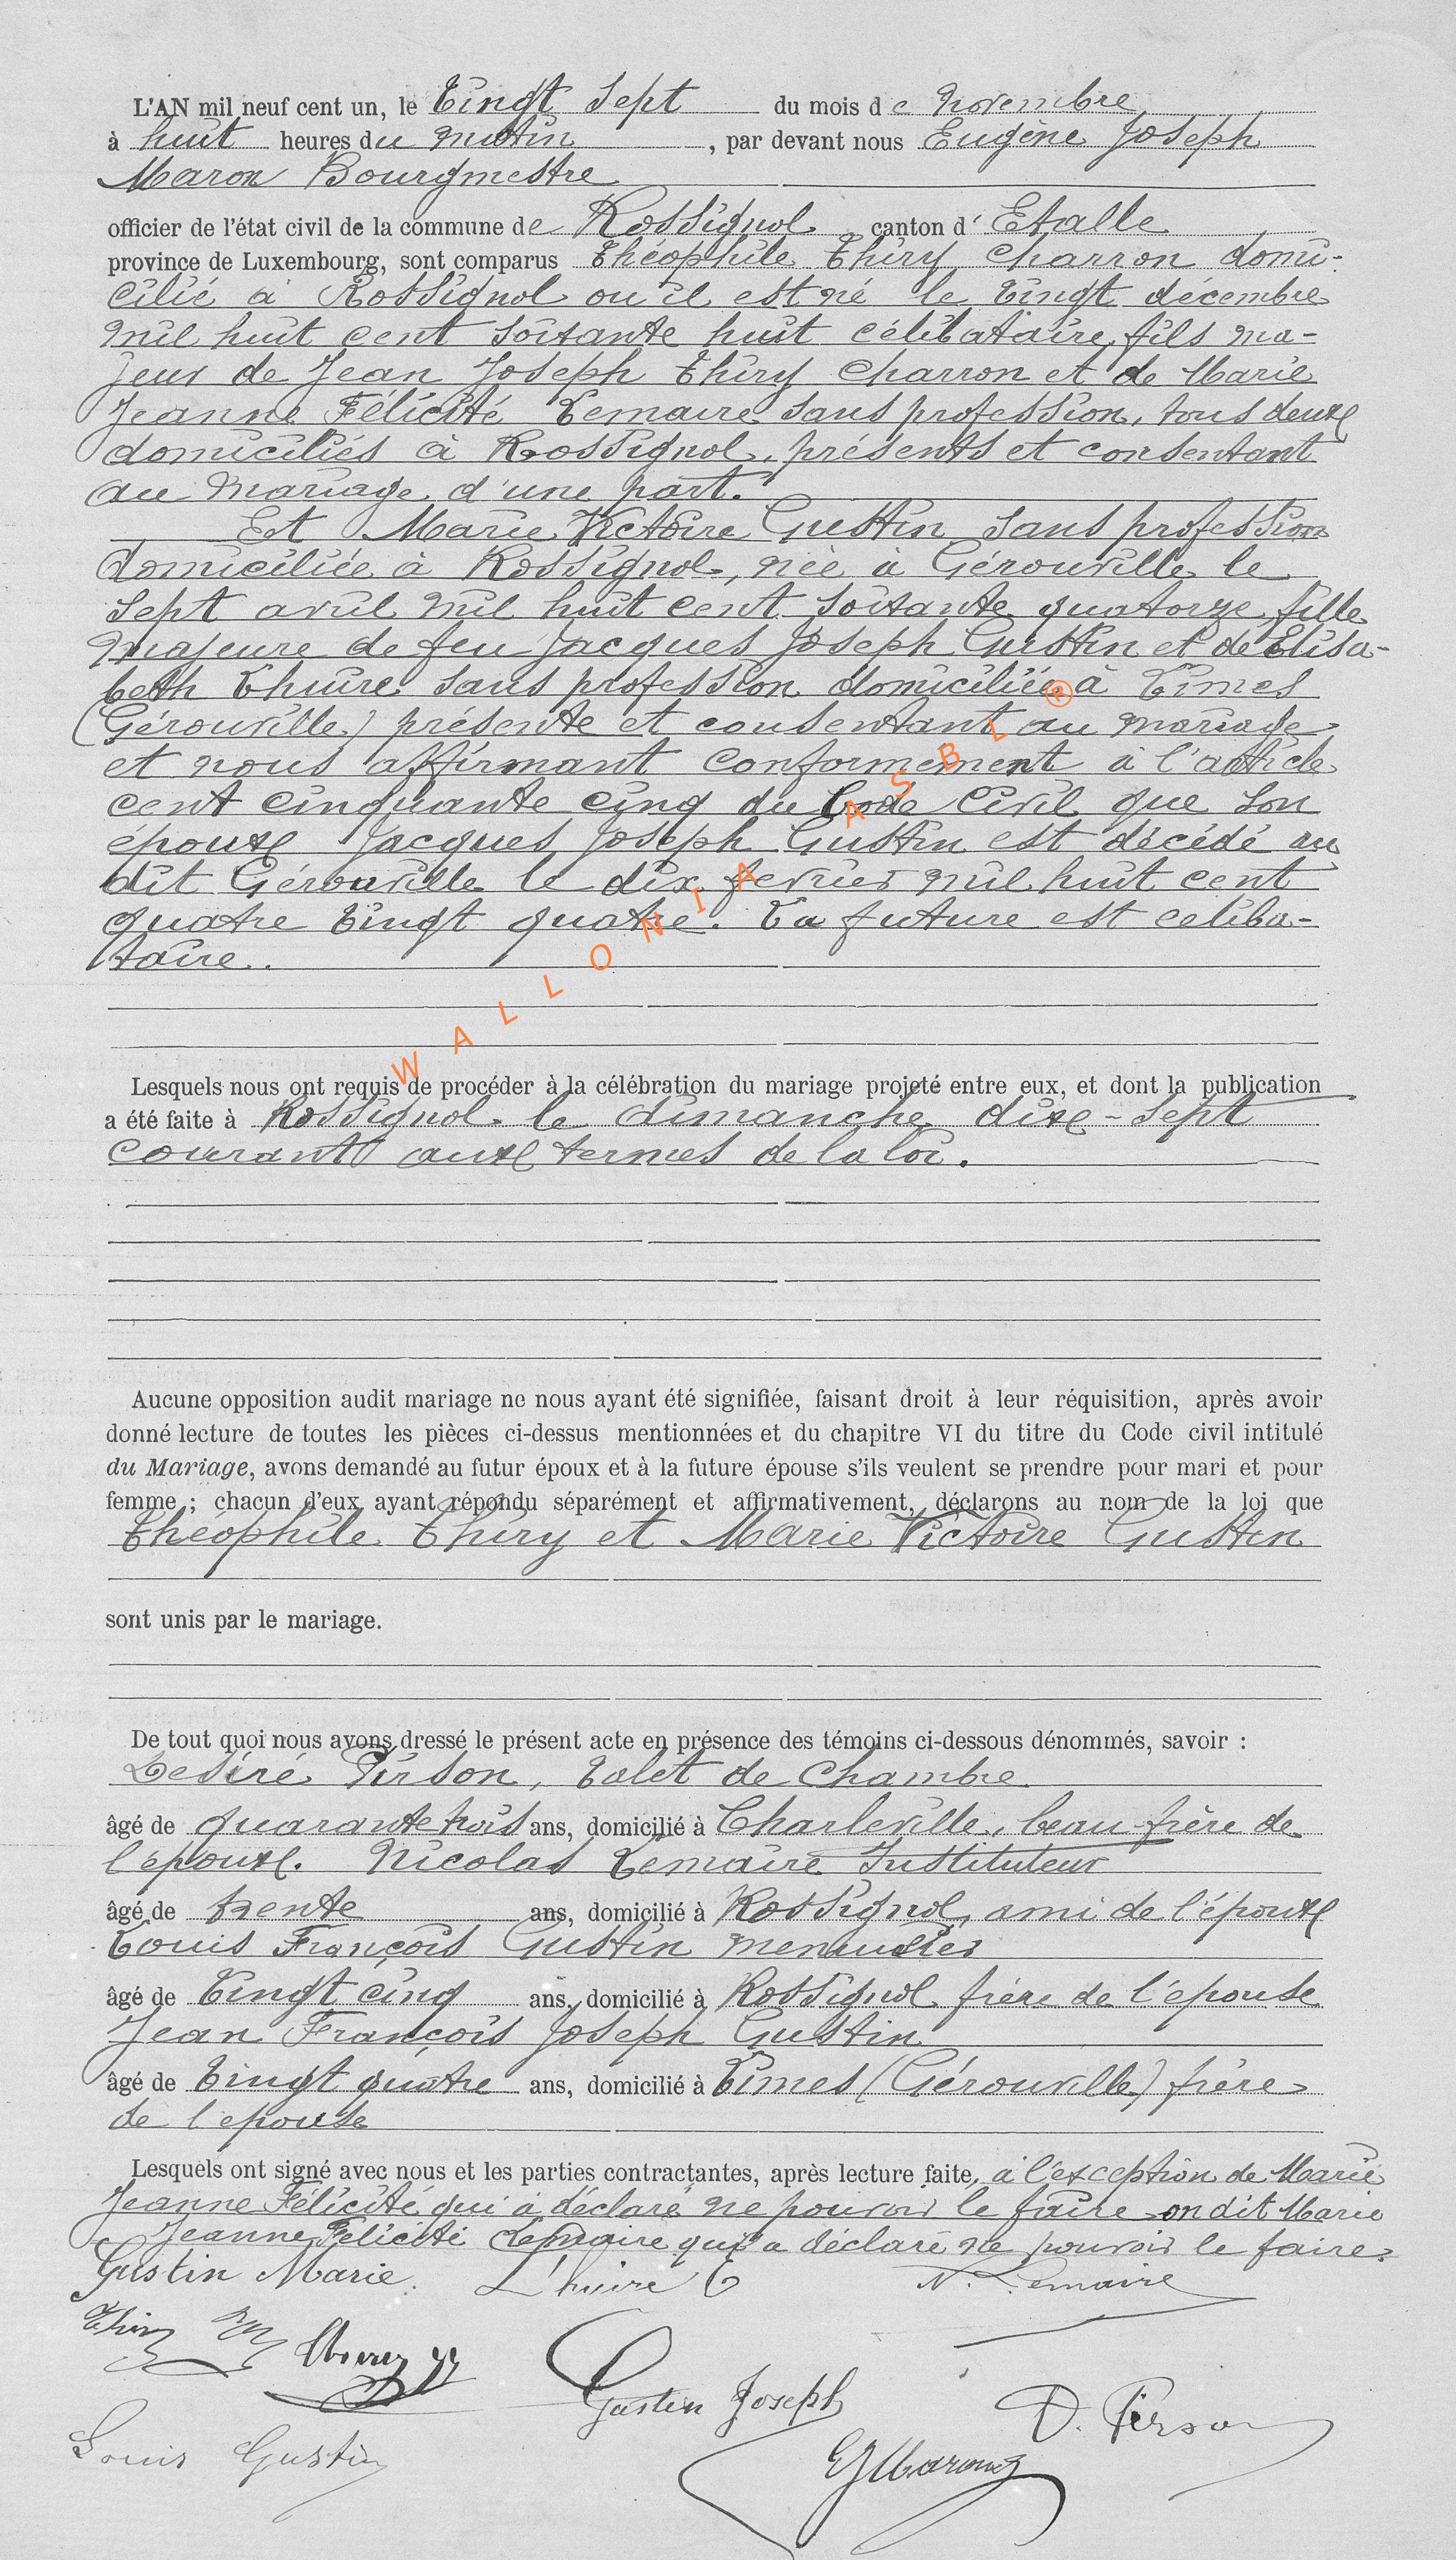 L'AN mil neuf cent un, le Vingt Sept du mois de Novembre
à huit heures du matin, par devant nous Eugène Joseph
Maron Bourgmestre
officier de l'état civil de la commune de Rossignol canton d' Etalle
province de Luxembourg, sont comparus Théophile Thiry Charron domi-
cilié à Rossignol ou il est né le vingt décembre
mil huit cent soixante huit célibataire, fils ma-
jeur de Jean Joseph Thiry Charron et de Marie
Jeanne Félicité Lemaire sans profession, tous deux
domiciliés à Rossignol, présents et consentant
au mariage d'une part.
Et Marie Victoire Gustin sans profession
domiciliée à Rossignol, née à Gérouville le
sept avril mil huit cent soixante quatorze, fille
majeure de feu Jacques Joseph Gustin et de Elisa-
beth Lhuire sans profession domiciliée à Limes
(Gérouville) présente et consentant au mariage
et nous affirmant conformement à l'article
cent cinquante cinq du Code Civil que son
époux Jacques Joseph Gustin est décédé au
dit Gérouville le dix fevrier mil huit cent
quatre vingt quatre. La future est céliba-
taire.
WALLONIA ASBL ®
Lesquels nous ont requis de procéder à la célébration du mariage projeté entre eux, et dont la publication
a été faite à Rossignol le dimanche dix-sept
courant aux termes de la loi.
Aucune opposition audit mariage ne nous ayant été signifiée, faisant droit à leur réquisition, après avoir
donné lecture de toutes les pièces ci-dessus mentionnées et du chapitre VI du titre du Code civil intitulé
du Mariage, avons demandé au futur époux et à la future épouse s'ils veulent se prendre pour mari et pour
femme ; chacun d'eux ayant répondu séparément et affirmativement, déclarons au nom de la loi que
Théophile Thiry et Marie Victoire Gustin
sont unis par le mariage.
De tout quoi nous avons dressé le présent acte en présence des témoins ci-dessous dénommés, savoir :
Désiré Pirson, Valet de Chambre
âgé de quarante trois ans, domicilié à Charleville, beau-frère de
l'époux. Nicolas Lemaire Instituteur
âgé de trente ans, domicilié à Rossignol, ami de l'époux
Louis François Gustin menuisier
âgé de Vingt cinq ans, domicilié à Rossignol frère de l'épouse
Jean François Joseph Gustin
âgé de Vingt quatre ans, domicilié à Limes (Gérouville) frère
de l'epouse
Lesquels ont signé avec nous et les parties contractantes, après lecture faite, à l'exception de Marie
Jeanne Félicité qui à déclaré ne pouvoir le faire on dit Marie
Jeanne Félicité Lemaire qui a déclaré ne pouvoir le faire.
Gustin Marie. Lhuire E N. Lemaire
Thiry
Gustin Joseph D. Pirson
Louis Gustin EJ Maron